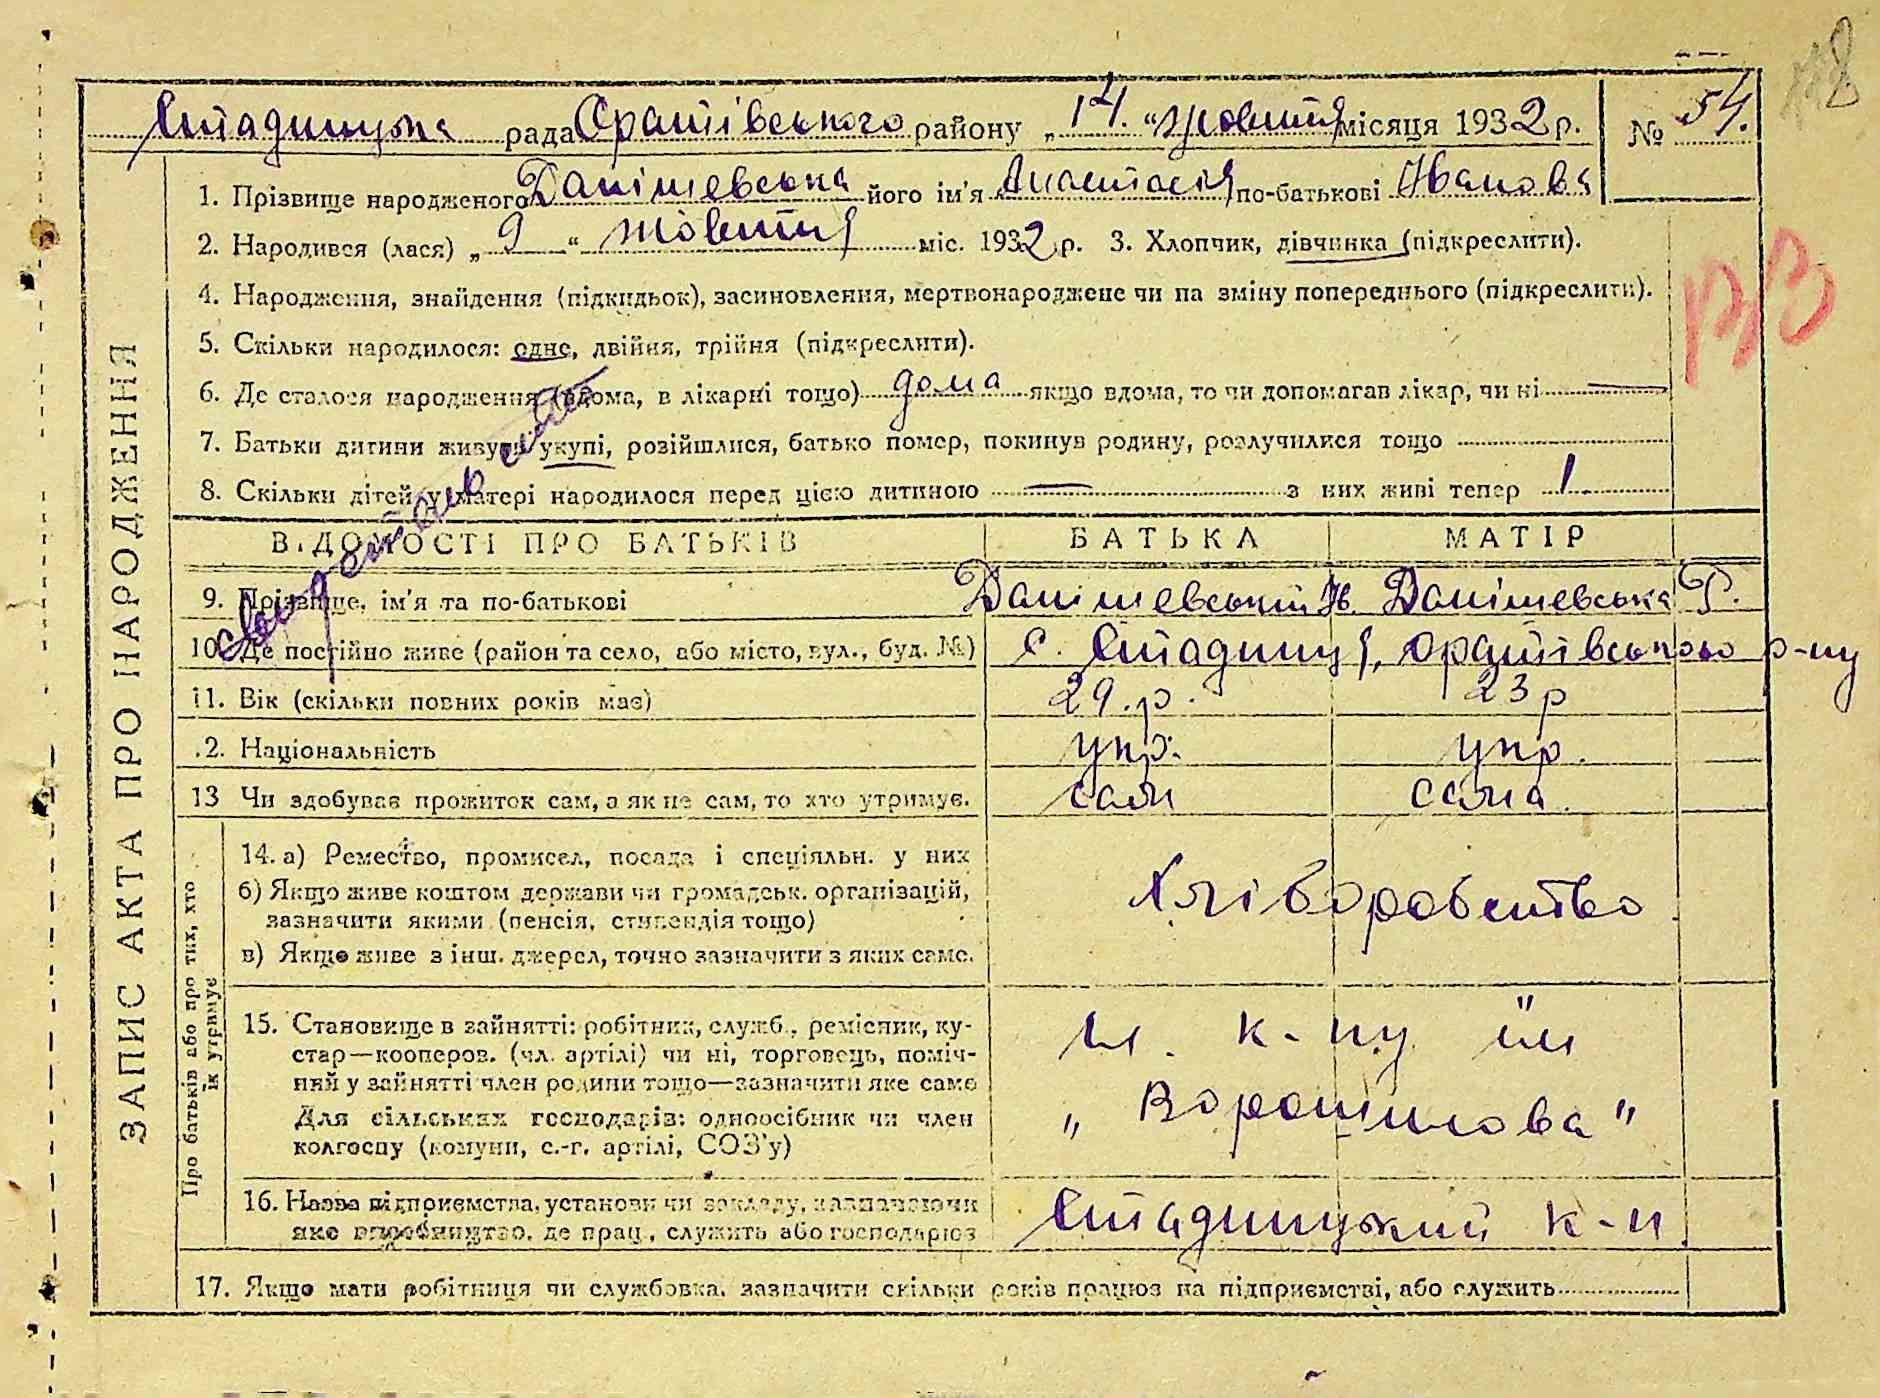 Стадницька рада Оратівського району „14.“ жовтня місяця 1932 р. № 54.
1. Прізвище народженого Данішевська його ім'я Анастасія по-батькові Іванова
2. Народився (лася) „ 9 “ жовтня міс. 1932 р. 3. Хлопчик, дівчинка (підкреслити).
4. Народження, знайдення (підкидьок), засиновлення, мертвонароджене чи на зміну попереднього (підкреслити).
5. Скільки народилося: одне, двійня, трійня (підкреслити).
6. Де сталося народження (вдома, в лікарні тощо) дома якщо вдома, то чи допомагав лікар, чи ні —
7. Батьки дитини живуть укупі, розійшлися, батько помер, покинув родину, розлучилися тощо
8. Скільки дітей у матері народилося перед цією дитиною — з них живі тепер 1
ВІДОМОСТІ ПРО БАТЬКІВ БАТЬКА МАТІР
9. Прізвище, ім'я та по-батькові Данішевський Ів. Данішевська Г.
10. Де постійно живе (район та село, або місто, вул., буд. №) с. Стадниця, Оратівського р-ну
11. Вік (скільки повних років має) 29.р. 23 р
.2. Національність укр. укр.
13 Чи здобуває прожиток сам, а як не сам, то хто утримує. сам сама
14. а) Ремество, промисел, посада і спеціяльн. у них
б) Якщо живе коштом держави чи громадськ. організацій,
зазначити якими (пенсія, стипендія тощо)
в) Якщо живе з інш. джерел, точно зазначити з яких саме.
Хліборобство
15. Становище в зайнятті: робітник, служб., ремісник, ку-
стар—кооперов. (чл. артілі) чи ні, торговець, поміч-
ний у зайнятті член родини тощо—зазначити яке саме
Для сільських господарів: одноосібник чи член
колгоспу (комуни, с.-г. артілі, СОЗ'у)
к-пу ім
„ Ворошилова "
16. Назва підприємства, установи чи закладу, зазначаючи
яке виробництво, де прац., служить або господарює
Стадницький к-п.
17. Якщо мати робітниця чи службовка, зазначити скільки років працює на підприємстві, або служить
ЗАПИС АКТА ПРО НАРОДЖЕННЯ
Про батьків або про тих, хто
їх утримує